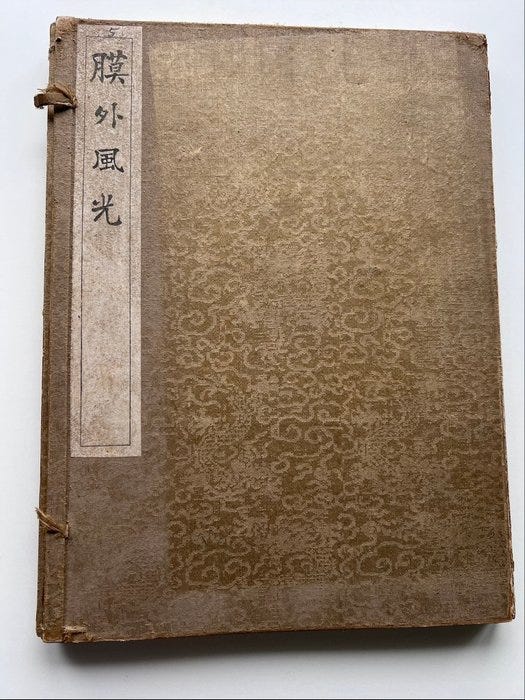 5
膜外風光